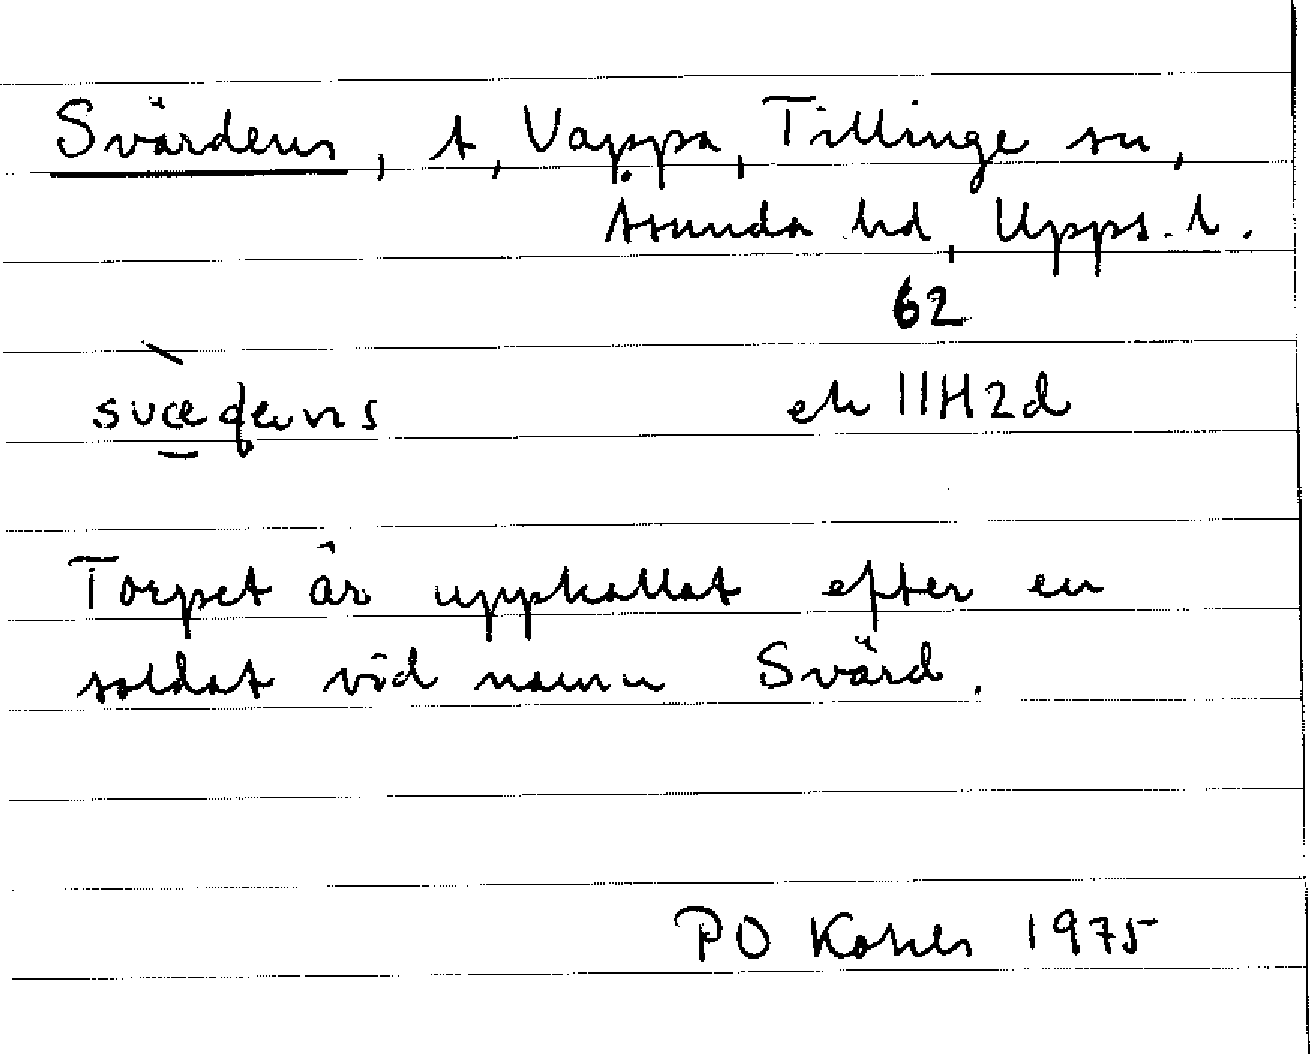 Svärdens, t, Vappa, Tillinge sn,
Åsunda hd, Upps. l.
62
ek 11H2d
Torpet är uppkallat efter en
soldat vid namn Svärd.
PO 1975